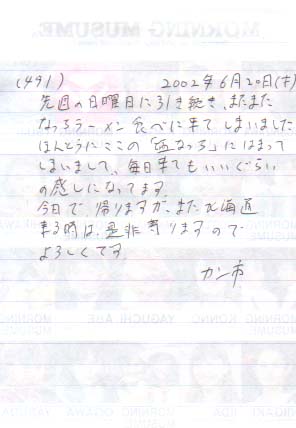 (491) 2002年6月20日(木)
先週の日曜日に引き続き、またまた
なっちラーメン食べに来てしまいました
ほんとうにここの「塩なっち」にはまって
しまいまして、毎日来てもいいぐらい
の感じになってます。
今日で、帰りますが、また北海道
来る時は、是非寄りますので
よろしくです。
カン市
MORNING MUSUME
KONNO
YAGUCHI
ABE
MORNING
MUSUME
IIDA
OGAWA
YASUDA